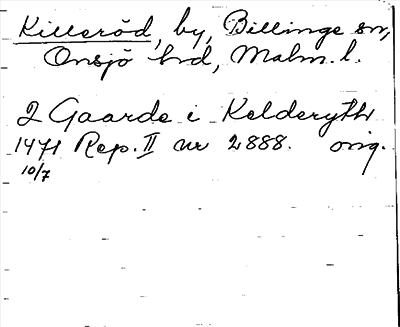 Killeröd, by, Billinge sn,
Onsjö hd, Malm. l.
2 Gaarde i Kelderyth
1471 Rep. II nr 2888. orig.
10/7